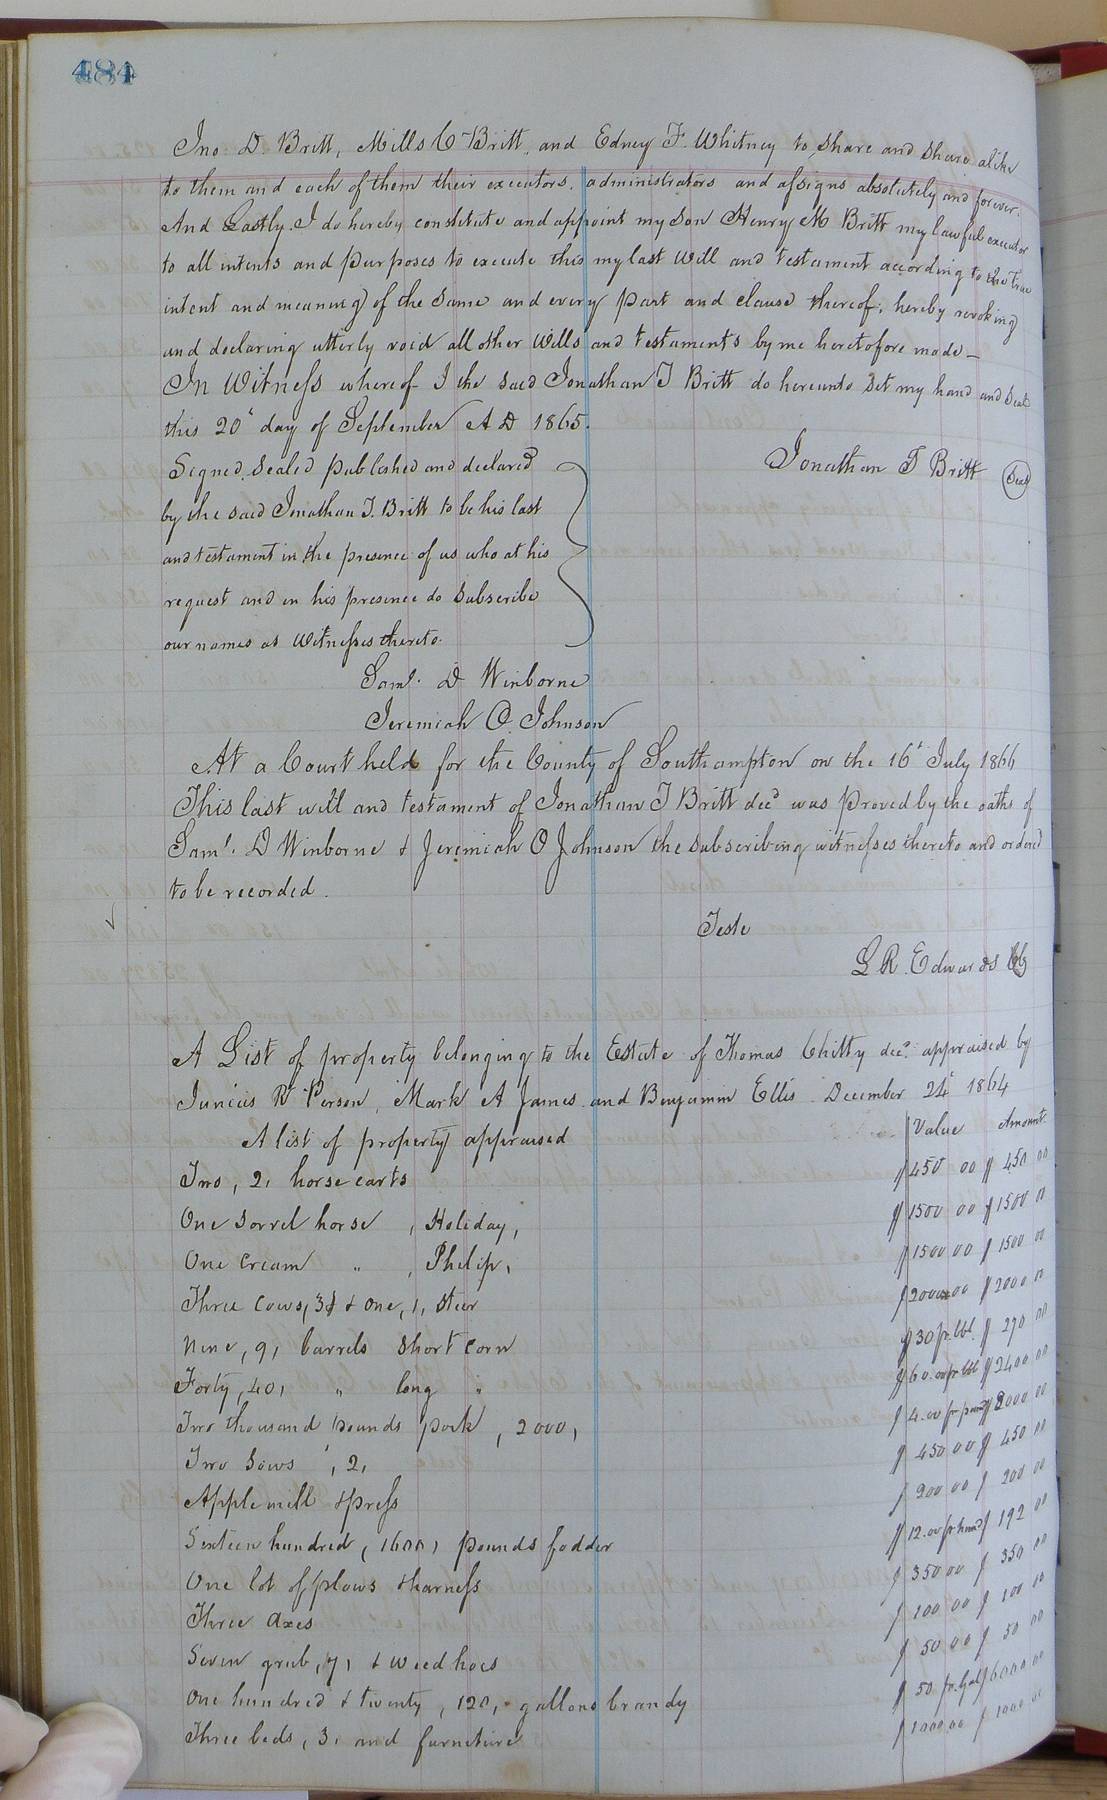 484
Jno. D. Britt, Mills C Britt, and Edney F. Whitney to share and share alike
to them and each of them their executors, administrators and assigns absolutely and forever.
And Lastly. I do hereby constitute and appoint my son Henry M Britt my lawful executor
to all intents and purposes to execute this my last Will and testament according to the true
intent and meaning of the same and every part and clause thereof; hereby revoking
and declaring utterly void all other Wills and testaments by me heretofore made—
In Witness whereof I the said Jonathan T Britt do hereunto set my hand and Seal
this 20th day of September A D 1865.
Signed, Sealed Published and declared
Jonathan T Britt (Seal)
by the said Jonathan T. Britt to be his last
and testament in the presence of us who at his
request and in his presence do Subscribe
our names as Witnesses thereto.
Saml. D Winborne
Jeremiah O. Johnson
At a Court held for the County of Southampton on the 16th July 1866
This last will and testament of Jonathan T Britt decd was proved by the oaths of
Saml. D Winborne & Jeremiah O Johnson the subscribing witnesses thereto and ordered
to be recorded.
Teste
L R. Edwards Clk
A List of property belonging to the Estate of Thomas Chitty decd. appraised by
Junius R Person, Mark A James and Benjamin Ellis December 24th 1864
A list of property appraised Value Amount
Two, 2, horse carts $ 450 00 $ 450 00
One sorrel horse , Holiday, $ 1500 00 $ 1500 00
One Cream " , Philip, $ 1500 00 $ 1500 00
Three Cows, 3, & One, 1, Steer $ 2000 00 $ 2000 00
Nine, 9, barrels Short corn $ 30 pr. bbl. $ 270 00
Forty, 40, " long " $ 60.00 pr bbl $ 2400 00
Two thousand pounds pork , 2000, $ 4.00 pr pound $ 8000 00
Two Sows , 2, $ 450 00 $ 450 00
Apple mill & press $ 200 00 $ 200 00
Sixteen hundred, 1600, pounds fodder $ 12.00 pr hund $ 192 00
One lot of plows & harness $ 350 00 $ 350 00
Three axes $ 100 00 $ 100 00
Seven grub, 7, & weed hoes $ 50 00 $ 50 00
One hundred & twenty, 120, gallons brandy $ 50 pr. Gal $ 6000 00
Three beds, 3, and furniture $ 1000 00 $ 1000 00